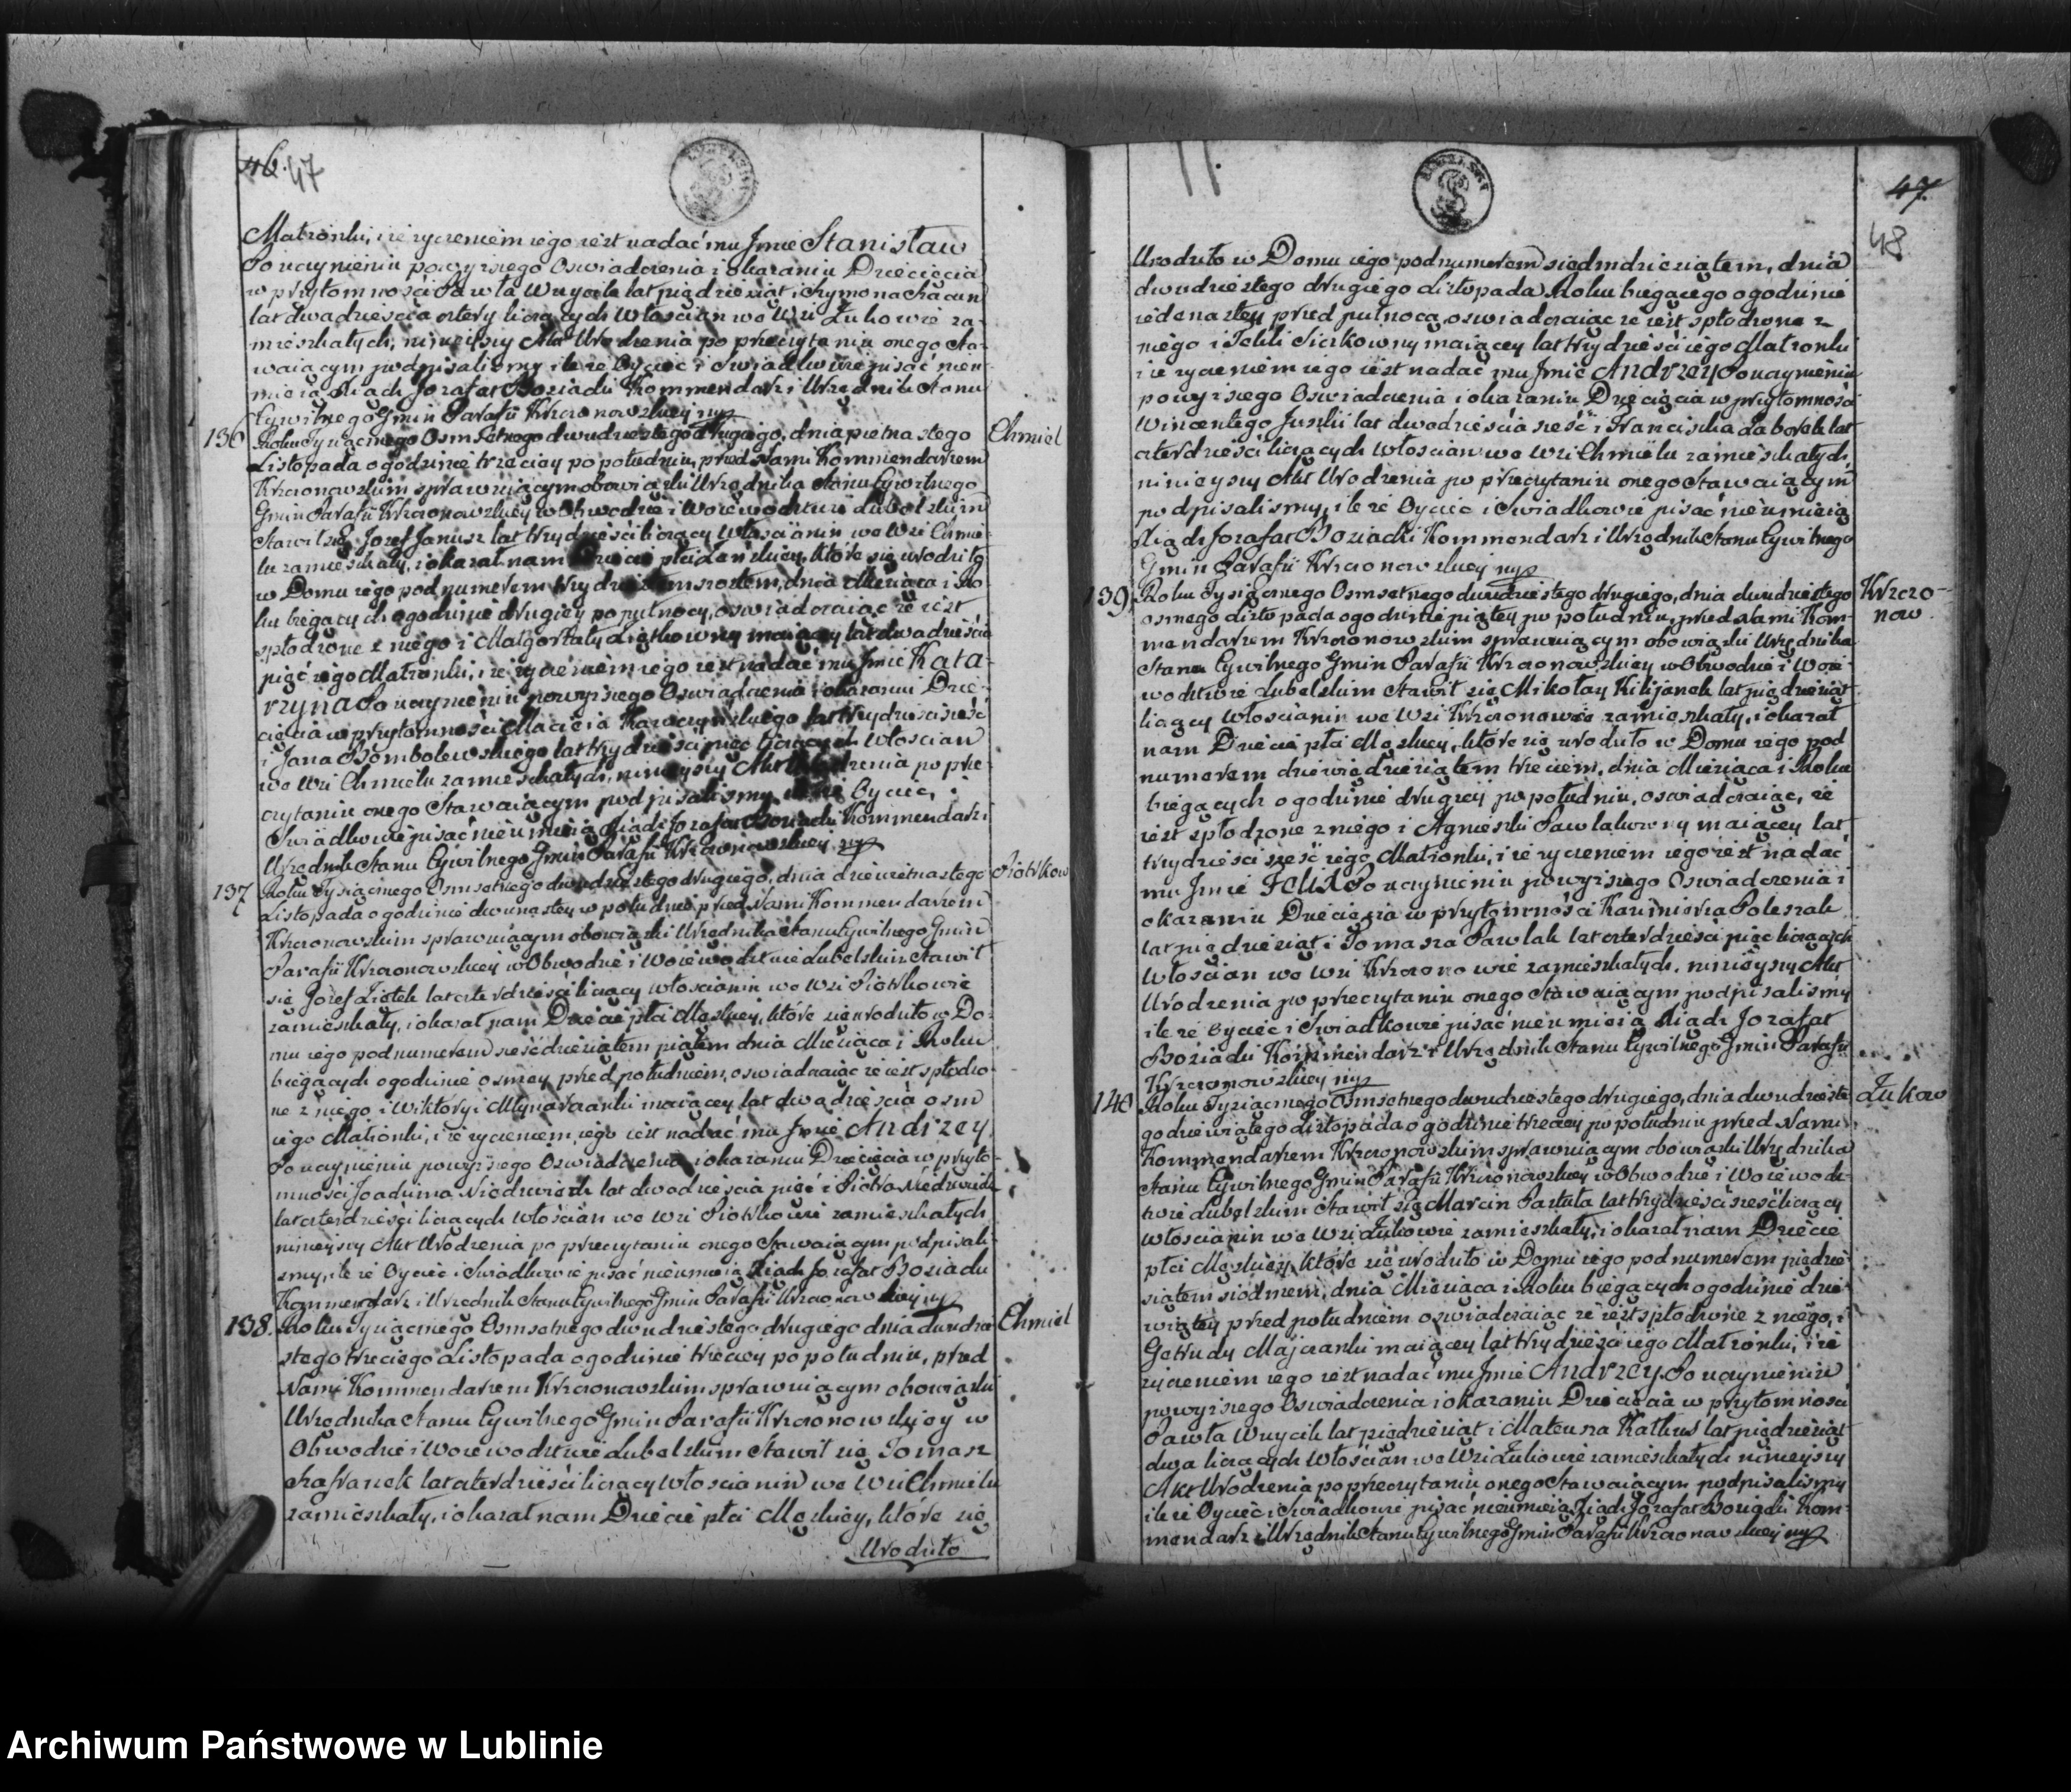 46. 47
Matronki, i że życzeniem iego iest nadać mu Jmie Stanisław
Po uczynieniu powyższego Oswiadczenia i okazaniu Dziecięcia
w przytomności Pawła Wuycik lat pięćdziesiąt i Szymona
lat dwadzieścia cztery liczących Włościan we Wsi Żukowie za-
mieszkałych, ninieyszy Akt Urodzenia po przeczytaniu onego Sta-
waiącym podpisalismy ile że Oyciec i Swiadkowie pisać nieu-
mieią Xiądz Jozafat Boziacki Kommendarz i Urzędnik Stanu
Cywilnego Gmin Parafii Krzczonowskiey mp
136 Roku Tysiącznego Osmsetnego dwudziestego drugiego, dnia pietnastego Chmiel
Listopada o godzinie trzeciey po południu, przed Nami Kommendarzem
Krzczonowskim sprawuiącym obowiązki Urzędnika Stanu Cywilnego
Gmin Parafii Krzczonowskiey w Obwodzie i Woiewodztwie Lubelskim
Stawił się Jozef Janusz lat trzydzieści liczący Włościanin we Wsi Chmie-
lu zamieszkały, i okazał nam Dziecie płci Żeńskiey, które się urodziło
w Domu iego pod numerem trzydziestem szostem, dnia Miesiąca i Ro-
ku bieżących o godzinie drugiey po pułnocy, oswiadczaiąc że iest
spłodzone z niego i Małgorzaty maiącey lat dwadzieścia
pięć iego Matronki, i że życzeniem iego iest nadać mu Jmie Kata-
rzyna Po uczynieniu powyższego Oswiadczenia i okazaniu Dzie-
cięcia w przytomności Macieia Kawczynskiego lat trzydzieści sześć
i Jana Bombolewskiego lat trzydzieści pięć liczących Włościan
we Wsi Chmielu zamieszkałych, ninieyszy Akt Urodzenia po prze-
czytaniu onego Stawaiącym podpisalismy ile że Oyciec, i
Swiadkowie pisać nieumieią Xiądz Jozafat Boziacki Kommendarz i
Urzędnik Stanu Cywilnego Gmin Parafii Krzczonowskiey mp
137 Roku Tysiącznego Osmsetnego dwudziestego drugiego, dnia dziewietnastego Piotrkow
Listopada o godzinie dwunastey w południe przed Nami Kommendarzem
Krzczonowskim sprawuiącym obowiązki Urzędnika Stanu Cywilnego Gmin
Parafii Krzczonowskiey w Obwodzie i Woiewodztwie Lubelskim Stawił
się Jozef Ziołek lat czterdzieści liczący Włościanin we Wsi Piotrkowie
zamieszkały, i okazał nam Dziecie płci Męskiey, które się urodziło w Do-
mu iego pod numerem sześćdziesiątem piątem dnia Miesiąca i Roku
bieżących o godzinie osmey przed południem, oswiadczaiąc że iest spłodzo-
ne z niego i Wiktoryi Młynarzanki maiącey lat dwadzieścia osm
iego Matronki, i że życzeniem iego iest nadać mu Jmie Andrzey
Po uczynieniu powyższego Oswiadczenia i okazaniu Dziecięcia w przyto-
mności Joachima Niedzwiedz lat dwadzieścia pięć i Piotra Niedzwiedz
lat czterdzieści liczących Włościan we Wsi Piotrkowie zamieszkałych
ninieyszy Akt Urodzenia po przeczytaniu onego Stawaiącym podpisali-
smy, ile że Oyciec i Swiadkowie pisać nieumieią Xiądz Jozafat Boziacki
Kommendarz i Urzednik Stanu Cywilnego Gmin Parafii Krzczonowskiey mp
138. Roku Tysiącznego Osmsetnego dwudziestego drugiego dnia dwudzie- Chmiel
stego trzeciego Listopada o godzinie trzeciey po południu, przed
Nami Kommendarzem Krzczonowskim sprawuiącym obowiązki
Urzędnika Stanu Cywilnego Gmin Parafii Krzczonowskiey w
Obwodzie i Woiewodztwie Lubelskim Stawił się Tomasz
Szafranek lat czterdzieści liczący Włościanin we Wsi Chmielu
zamieszkały, i okazał nam Dziecie płci Męskiey, które się
Urodziło
47.
48
Urodziło w Domu iego pod numerem siedmdziesiątem, dnia
dwudziestego drugiego Listopada Roku bieżącego o godzinie
iedenastey przed pułnocą, oswiadczaiąc że iest spłodzone z
niego i Tekli Siczkowny maiącey lat trzydzieści iego Matronki
i że życzeniem iego iest nadać mu Jmie Andrzey Po uczynieniu
powyższego Oswiadczenia i okazaniu Dziecięcia w przytomności
Wincentego Juszki lat dwadzieścia sześć i Franciszka Zaborek lat
czterdzieści liczących Włościan we Wsi Chmielu zamieszkałych
ninieyszy Akt Urodzenia po przeczytaniu onego Stawaiącym
podpisalismy, ile że Oyciec i Swiadkowie pisać nieumieią
Xiądz Jozafat Boziacki Kommendarz i Urzędnik Stanu Cywilnego
Gmin Parafii Krzczonowskiey mp
139 Roku Tysiącznego Osmsetnego dwudziestego drugiego, dnia dwudziestego Krzczo-
osmego Listopada o godzinie piątey po południu, przed Nami Kom- now
mendarzem Krzczonowskim sprawuiącym obowiązki Urzędnika
Stanu Cywilnego Gmin Parafii Krzczonowskiey w Obwodzie i Woie-
wodztwie Lubelskim Stawił się Mikołay Kilijanek lat pięćdziesiąt
liczący Włościanin we Wsi Krzczonowie zamieszkały, i okazał
nam Dziecie płci Męskiey, które się urodziło w Domu iego pod
numerem dziewiędziesiątem trzeciem, dnia Miesiąca i Roku
bieżących o godzinie drugiey po południu, oswiadczaiąc, że
iest spłodzone z niego i Agnieszki Pawlakowny maiącey lat
trzydzieści sześć iego Matronki, i że życzeniem iego iest nadać
mu Jmie Felix Po uczynieniu powyższego Oswiadczenia i
okazaniu Dziecięcia w przytomności Kazimierza Poleszak
lat pięćdziesiąt i Tomasza Pawlak lat czterdzieści pięć liczących
Włościan we Wsi Krzczonowie zamieszkałych, ninieyszy Akt
Urodzenia po przeczytaniu onego Stawaiącym podpisalismy
ile że Oyciec i Swiadkowie pisać nieumieią Xiądz Jozafat
Boziacki Kommendarz i Urzędnik Stanu Cywilnego Gmin Parafii
Krzczonowskiey mp
140 Roku Tysiącznego Osmsetnego dwudziestego drugiego, dnia dwudzieste- Żukow
go dziewiątego Listopada o godzinie trzeciey po południu przed Nami
Kommendarzem Krzczonowskim sprawuiącym obowiązki Urzędnika
Stanu Cywilnego Gmin Parafii Krzczonowskiey w Obwodzie i Woiewodz-
twie Lubelskim Stawił się Marcin Pastuła lat trzydzieści sześć liczący
Włościanin we Wsi Żukowie zamieszkały, i okazał nam Dziecie
płci Męskiey, które się urodziło w Domu iego pod numerem pięćdzie-
siątem siodmem, dnia Miesiąca i Roku bieżących o godzinie dzie-
wiątey przed południem oswiadczaiąc że iest spłodzone z niego, i
Getrudy Majczanki maiącey lat trzydzieści iego Matronki, i że
życzeniem iego iest nadać mu Jmie Andrzey. Po uczynieniu
powyższego Oswiadczenia i okazaniu Dziecięcia w przytomności
Pawła Wuycik lat pięćdziesiąt i Mateusza Kałkus lat pięćdziesiąt
dwa liczących Włościan we Wsi Żukowie zamieszkałych ninieyszy
Akt Urodzenia po przeczytaniu onego Stawaiącym podpisalismy
ile że Oyciec i Swiadkowie pisać nieumieią Xiądz Jozafat Boziacki Kom-
mendarz i Urzędnik Stanu Cywilnego Gmin Parafii Krzczonowskiey mp
Archiwum Państwowe w Lublinie